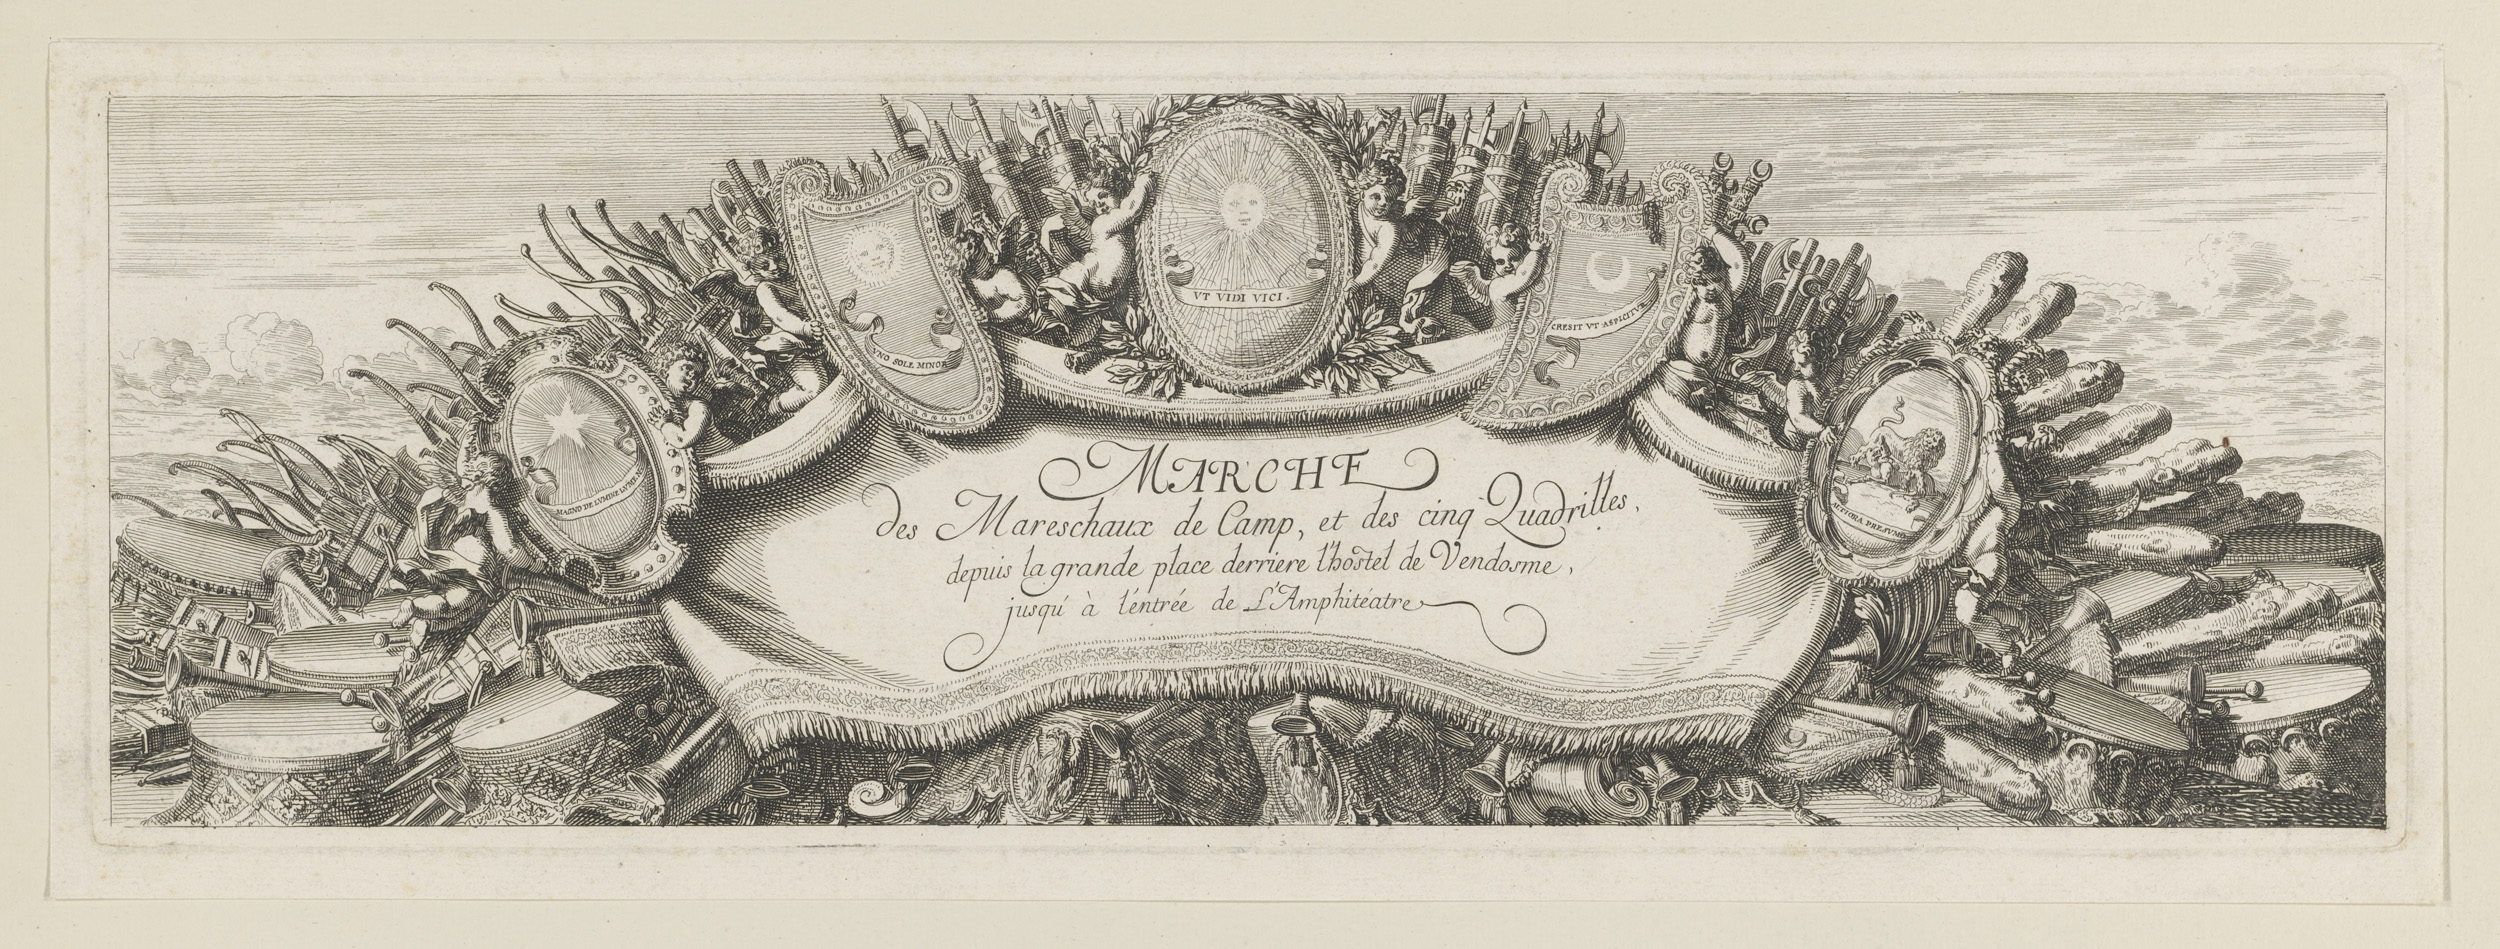 VT VIDI VICI.
VNO SOLE MINOR
CRESIT VT ASPICITVR
MAGNO DE LVMINE LVMEN
ALTIORA PRESVMO
MARCHE
des Mareschaux de Camp, et des cinq Quadrilles,
depuis la grande place derriere l'hostel de Vendosme,
jusqu' à l'éntrée de L'Amphiteatre